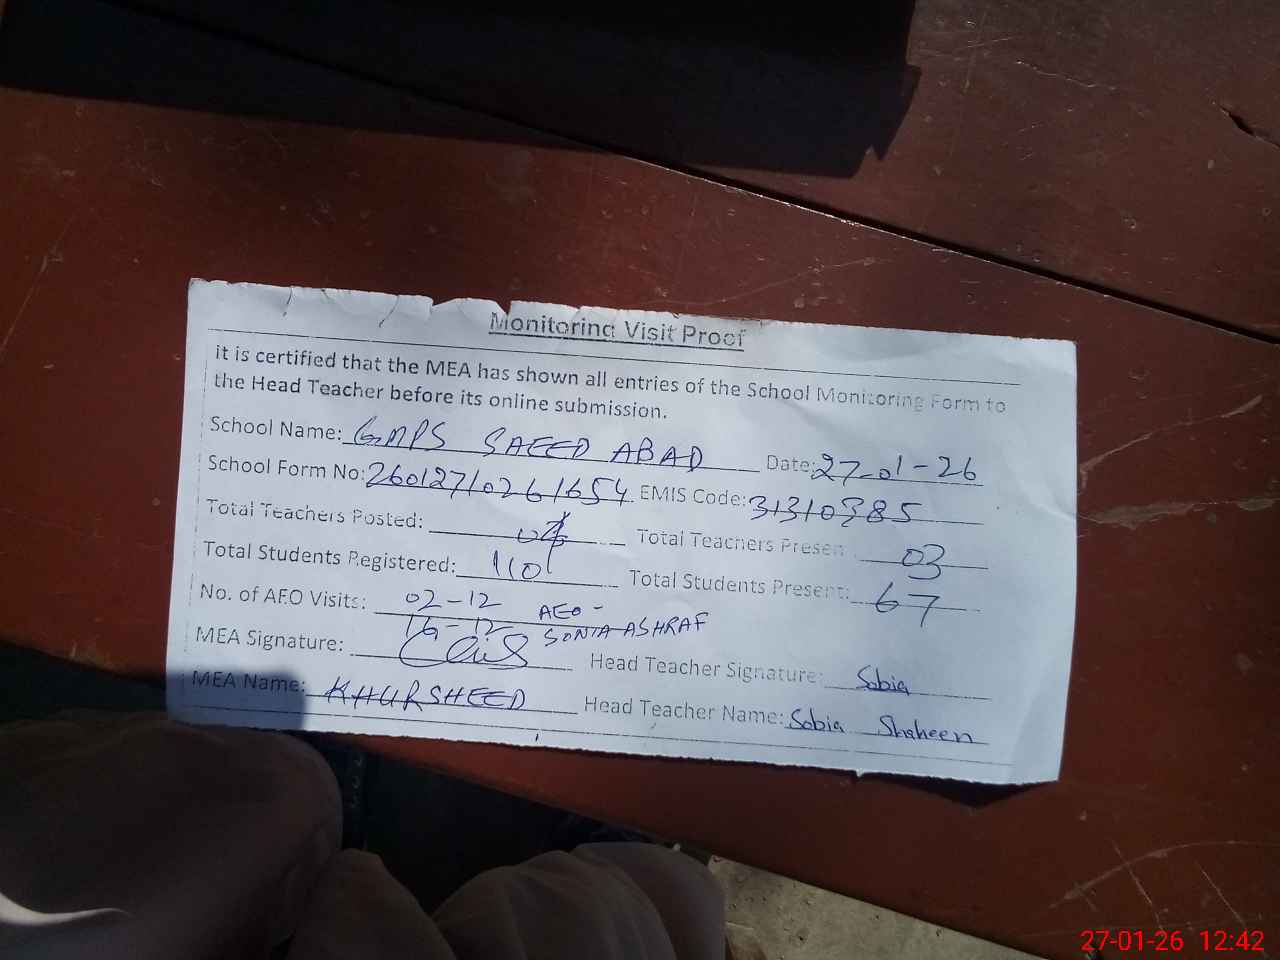 Monitoring Visit Proof
it is certified that the MEA has shown all entries of the School Monitoring Form to
the Head Teacher before its online submission.
School Name: GMPS SAEED ABAD Date: 27-01-26
School Form No: 26012710261654 EMIS Code: 31310385
Total Teachers Posted: 04 Total Teachers Presen: 03
Total Students Registered: 110 Total Students Present: 67
No. of AEO Visits: 02-12 AEO-
16-12 SONIA ASHRAF
MEA Signature: Head Teacher Signature: Sobia
MEA Name: KHURSHEED Head Teacher Name: Sobia Shaheen
27-01-26 12:42